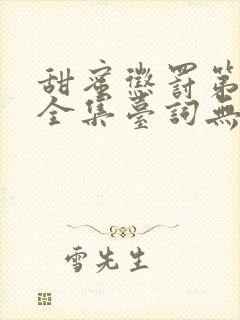 甜蜜懲罰第
全集臺詞無
雪先生